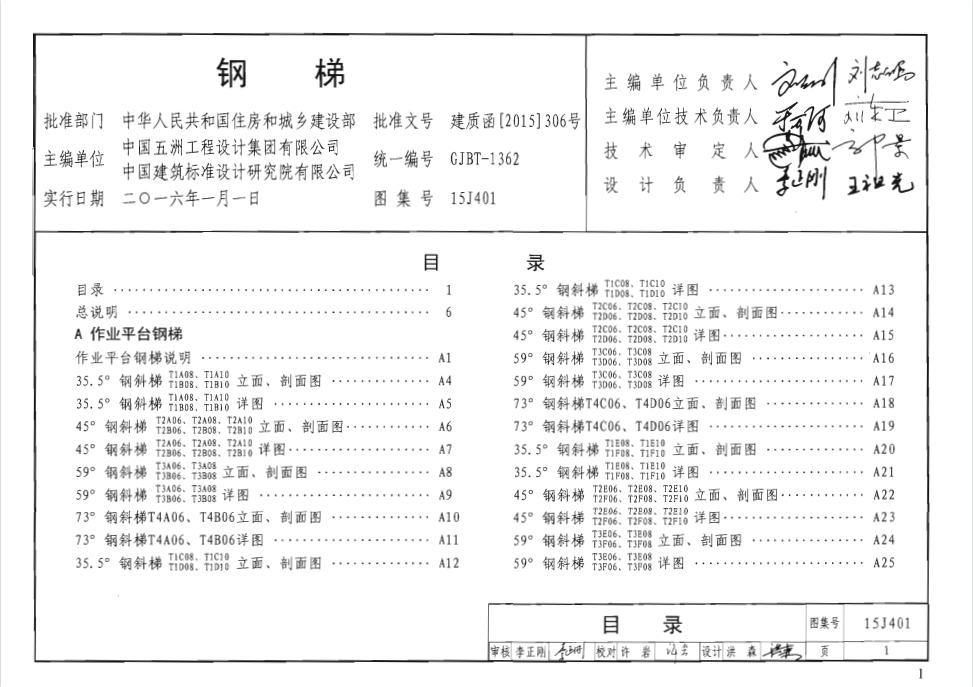 钢 梯
批准部门 中华人民共和国住房和城乡建设部 批准文号 建质函[2015]306号
主编单位 中国五洲工程设计集团有限公司
中国建筑标准设计研究院有限公司 统一编号 GJBT-1362
实行日期 二〇一六年一月一日 图集号 15J401
主编单位负责人
主编单位技术负责人
技术审定人
设计负责人
目 录
目录 ·········· 1
总说明 ·········· 6
A 作业平台钢梯
作业平台钢梯说明 ·········· A1
35.5° 钢斜梯 T1A08、T1A10 T1B08、T1B10 立面、剖面图 ·········· A4
35.5° 钢斜梯 T1A08、T1A10 T1B08、T1B10 详图 ·········· A5
45° 钢斜梯 T2A06、T2A08、T2A10 T2B06、T2B08、T2B10 立面、剖面图 ·········· A6
45° 钢斜梯 T2A06、T2A08、T2A10 T2B06、T2B08、T2B10 详图 ·········· A7
59° 钢斜梯 T3A06、T3A08 T3B06、T3B08 立面、剖面图 ·········· A8
59° 钢斜梯 T3A06、T3A08 T3B06、T3B08 详图 ·········· A9
73° 钢斜梯T4A06、T4B06立面、剖面图 ·········· A10
73° 钢斜梯T4A06、T4B06详图 ·········· A11
35.5° 钢斜梯 T1C08、T1C10 T1D08、T1D10 立面、剖面图 ·········· A12
35.5° 钢斜梯 T1C08、T1C10 T1D08、T1D10 详图 ·········· A13
45° 钢斜梯 T2C06、T2C08、T2C10 T2D06、T2D08、T2D10 立面、剖面图 ·········· A14
45° 钢斜梯 T2C06、T2C08、T2C10 T2D06、T2D08、T2D10 详图 ·········· A15
59° 钢斜梯 T3C06、T3C08 T3D06、T3D08 立面、剖面图 ·········· A16
59° 钢斜梯 T3C06、T3C08 T3D06、T3D08 详图 ·········· A17
73° 钢斜梯T4C06、T4D06立面、剖面图 ·········· A18
73° 钢斜梯T4C06、T4D06详图 ·········· A19
35.5° 钢斜梯 T1E08、T1E10 T1F08、T1F10 立面、剖面图 ·········· A20
35.5° 钢斜梯 T1E08、T1E10 T1F08、T1F10 详图 ·········· A21
45° 钢斜梯 T2E06、T2E08、T2E10 T2F06、T2F08、T2F10 立面、剖面图 ·········· A22
45° 钢斜梯 T2E06、T2E08、T2E10 T2F06、T2F08、T2F10 详图 ·········· A23
59° 钢斜梯 T3E06、T3E08 T3F06、T3F08 立面、剖面图 ·········· A24
59° 钢斜梯 T3E06、T3E08 T3F06、T3F08 详图 ·········· A25
目 录 图集号 15J401
审核 李正刚 校对 许岩 设计 洪森 页 1
1